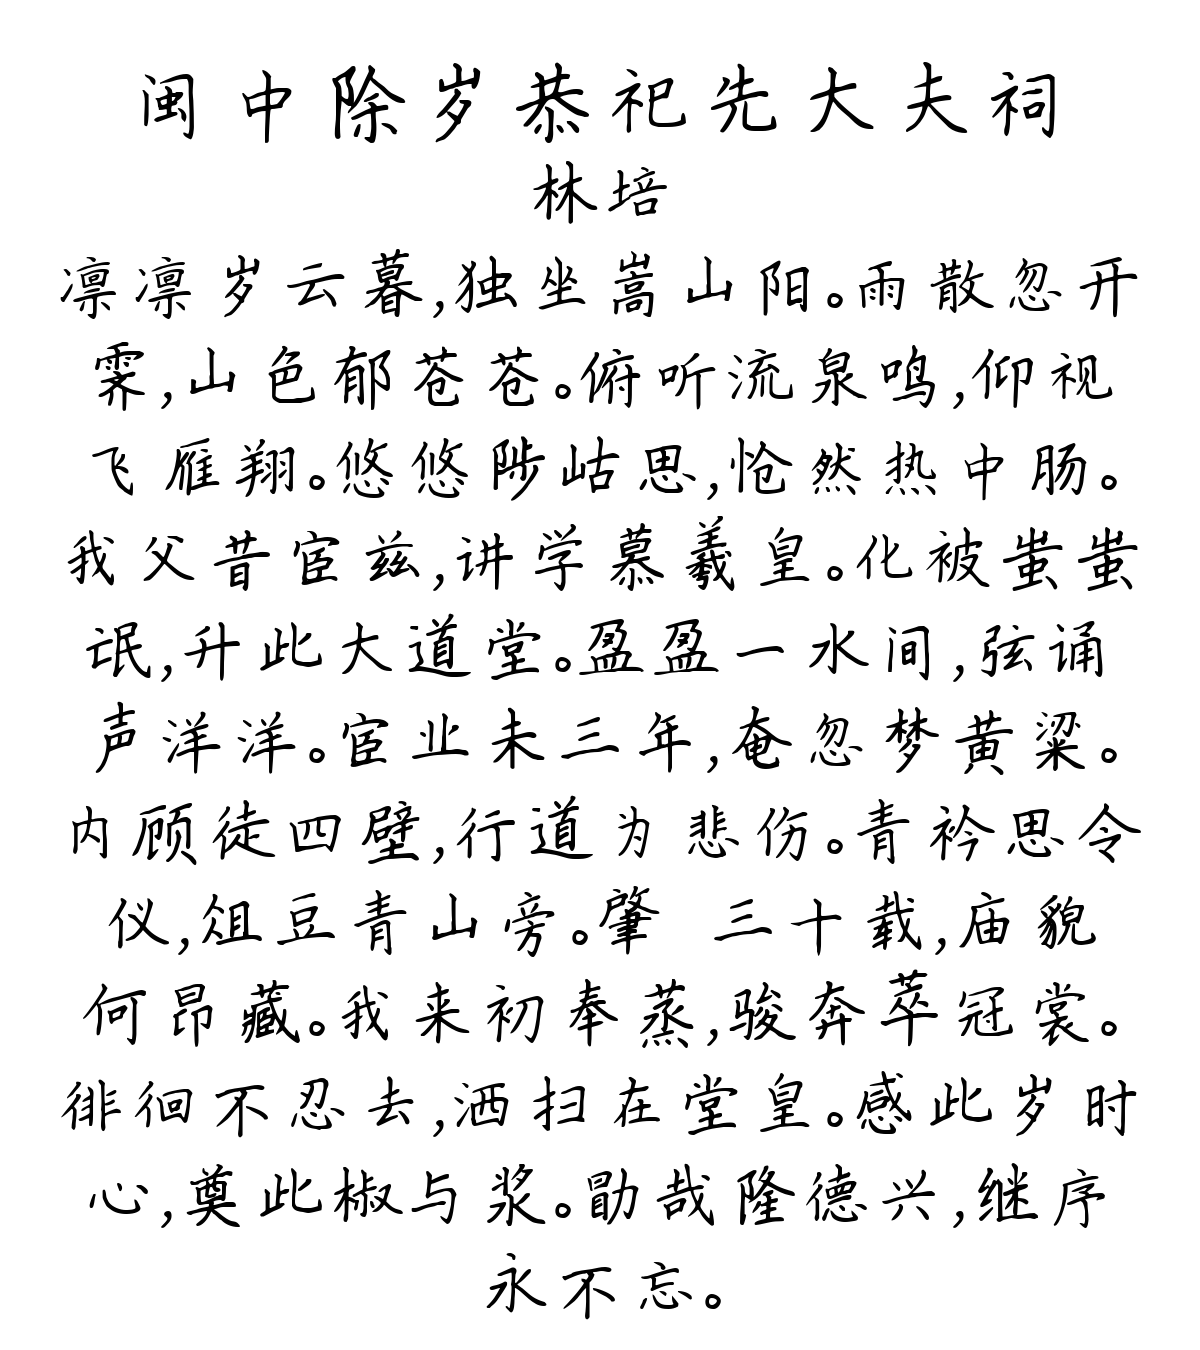 闽中除岁恭祀先大夫祠
林培
凛凛岁云暮,独坐嵩山阳。雨散忽开
霁,山色郁苍苍。俯听流泉鸣,仰视
飞雁翔。悠悠陟岵思,怆然热中肠。
我父昔宦兹,讲学慕羲皇。化被蚩蚩
氓,升此大道堂。盈盈一水间,弦诵
声洋洋。宦业未三年,奄忽梦黄粱。
内顾徒四壁,行道为悲伤。青衿思令
仪,俎豆青山旁。肇 三十载,庙貌
何昂藏。我来初奉蒸,骏奔萃冠裳。
徘徊不忍去,洒扫在堂皇。感此岁时
心,奠此椒与浆。勖哉隆德兴,继序
永不忘。